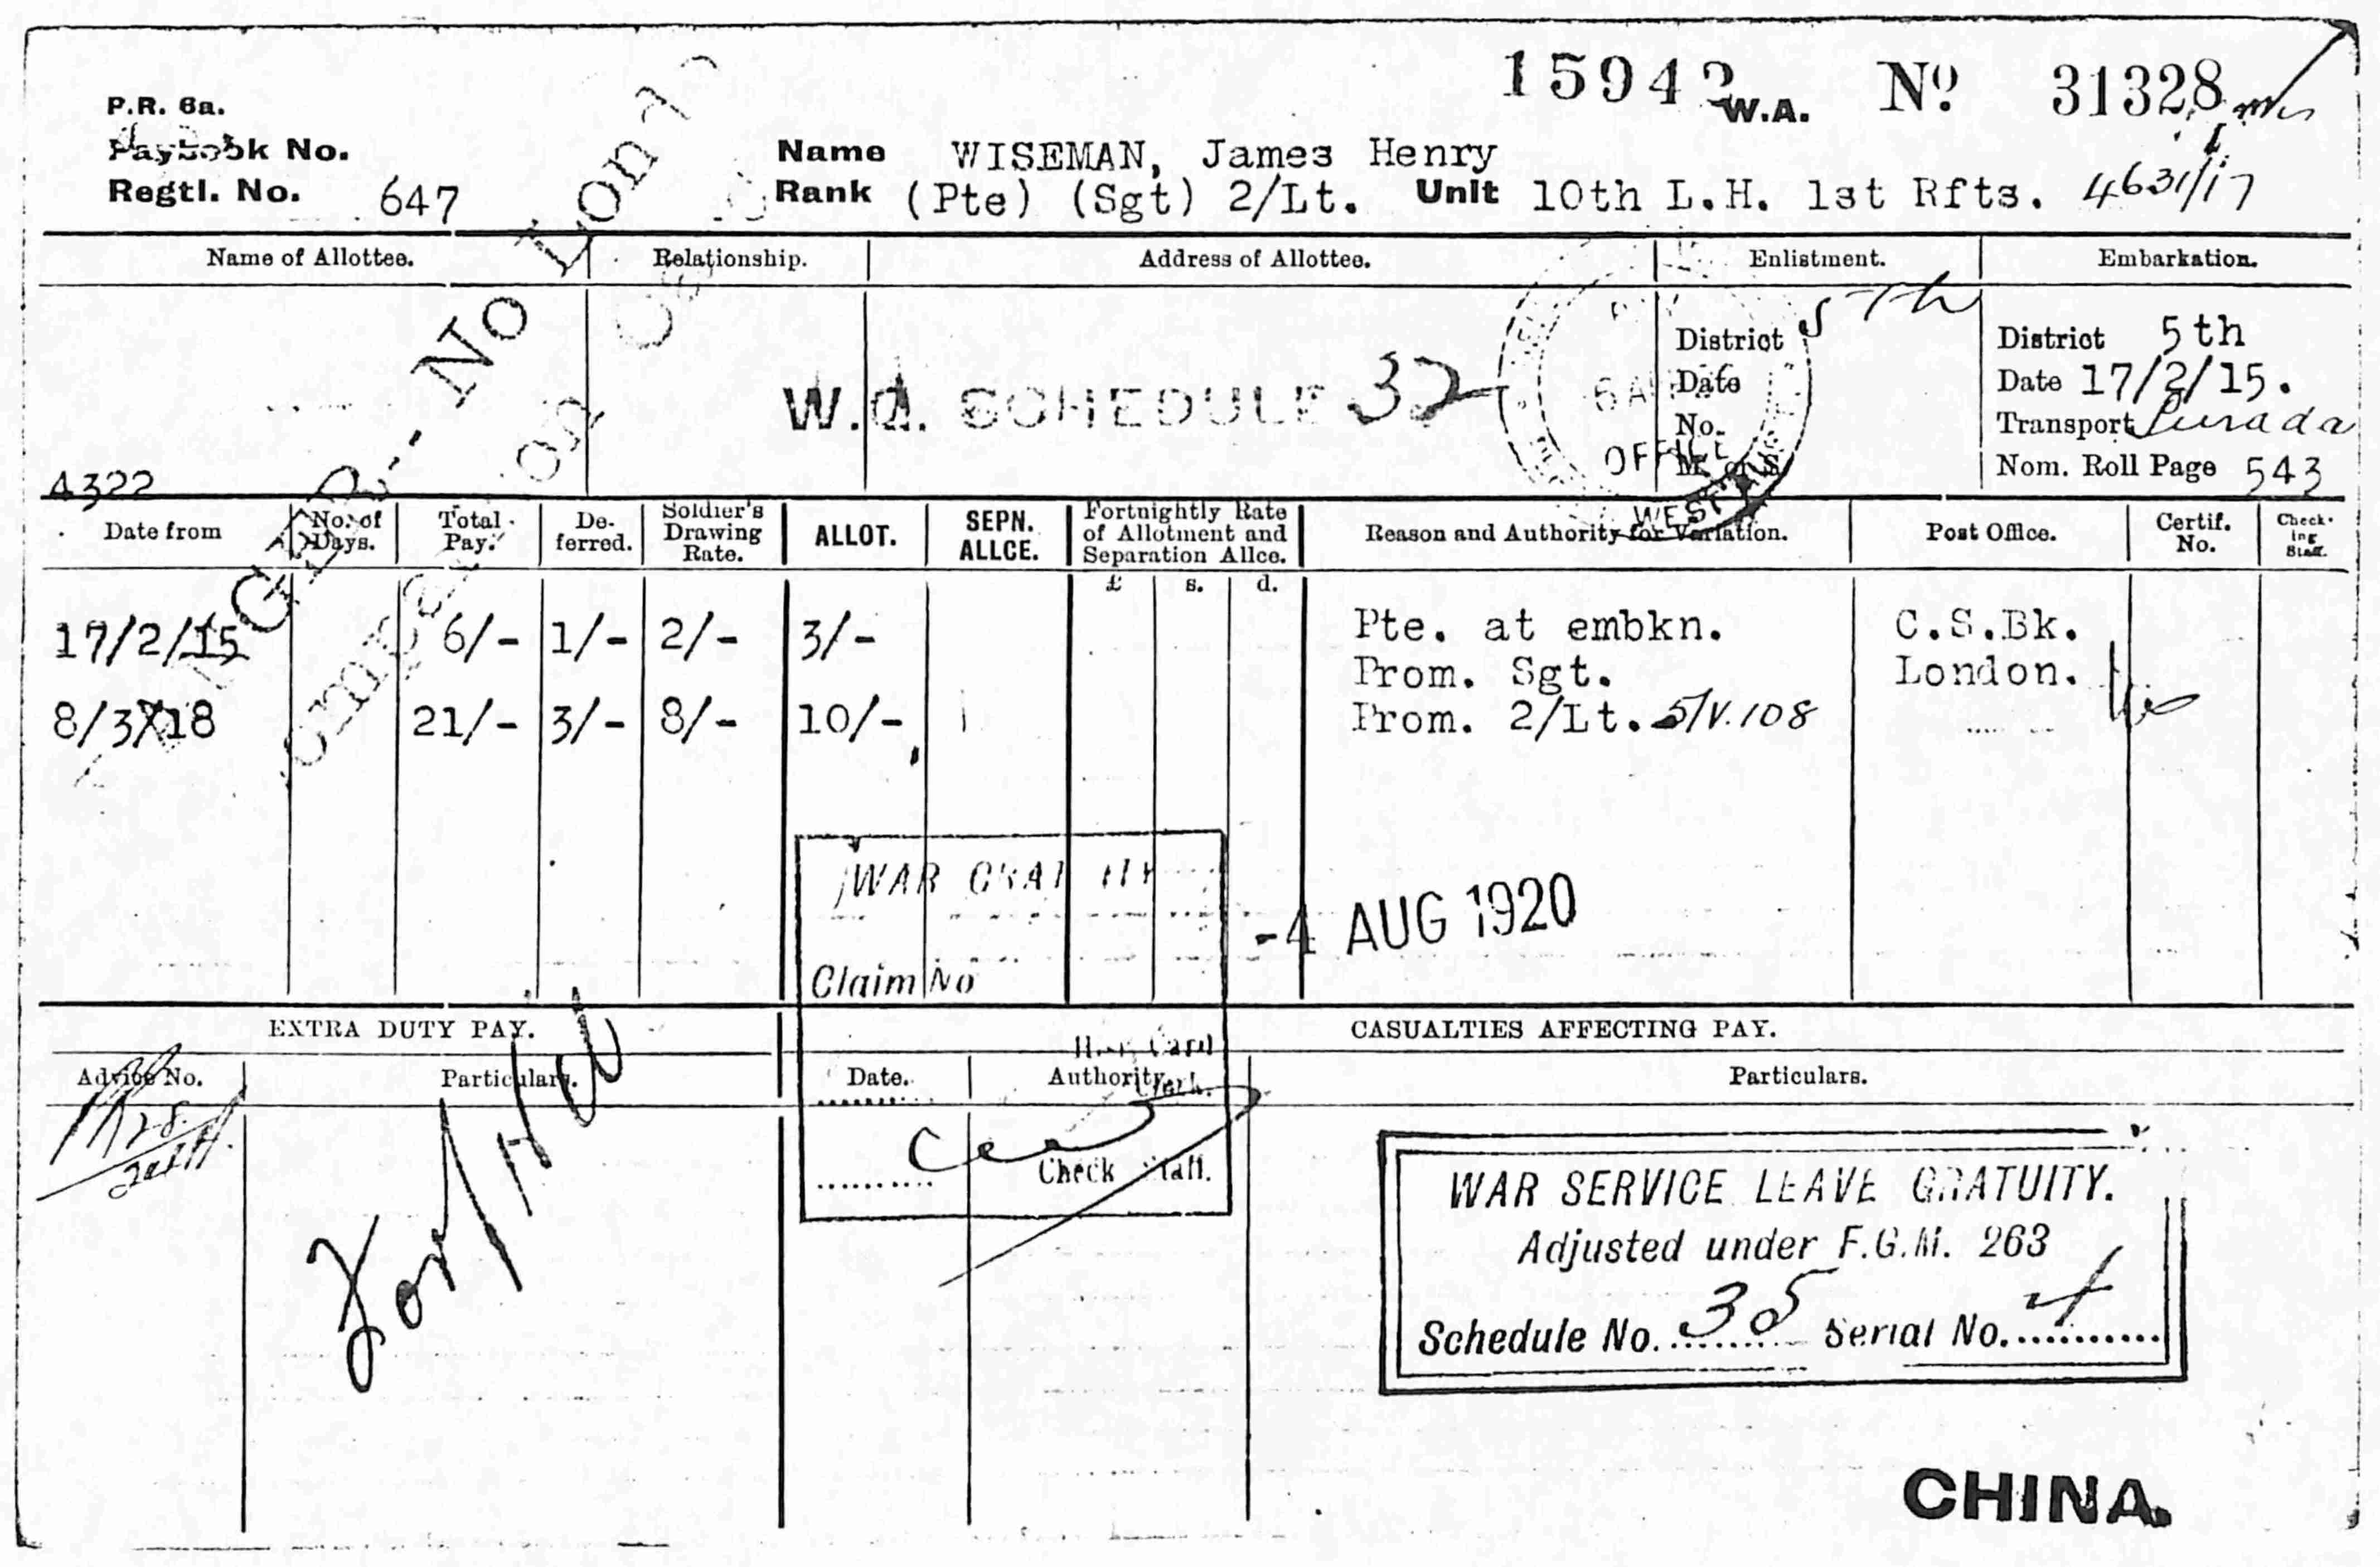 15942 W.A. Nº 31328
P.R. 6a.
Paybook No.
Name WISEMAN, James Henry
Regtl. No. 647
Rank (Pte) (Sgt) 2/Lt. Unit 10th L.H. 1st Rfts. 4631/17
Name of Allottee. Relationship. Address of Allottee. Enlistment. Embarkation.
District 5th
Date
No.
District 5th
Date 17/2/15.
Transport
Nom. Roll Page 543
W.A. SCHEDULE 32
OFFICE
4322
Date from No. of Days. Total Pay. De-ferred. Soldier's Drawing Rate. ALLOT. SEPN. ALLCE. Fortnightly Rate of Allotment and Separation Allce. Reason and Authority for Variation. Post Office. Certif. No. Check-ing Staff.
£ s. d.
17/2/15 6/- 1/- 2/- 3/- Pte. at embkn. C.S.Bk.
Prom. Sgt. London.
8/3/18 21/- 3/- 8/- 10/- Prom. 2/Lt. 5/V.108
WAR
-4 AUG 1920
Claim No
EXTRA DUTY PAY. CASUALTIES AFFECTING PAY.
Advice No. Particulars. Date. Authority. Particulars.
Check Staff.
WAR SERVICE LEAVE GRATUITY.
Adjusted under F.G.M. 263
Schedule No. 35 Serial No. 4
CHINA.